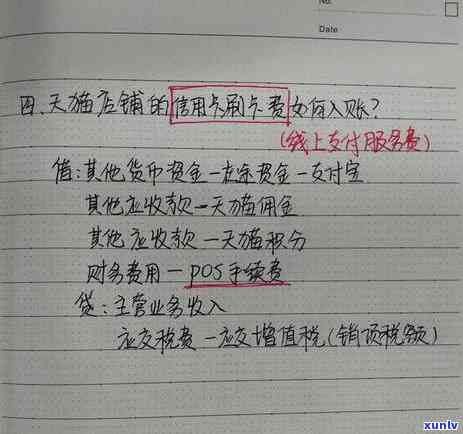 No.
Date
四、天猫店铺的信用卡刷卡费如何入账?
(线上支付服务费)
借:其他货币资金—在途资金—支付宝
其他应收款—天猫佣金
其他应收款—天猫积分
财务费用—POS手续费
贷:主营业务收入
应交税费—应交增值税(销项税额)
xunlv